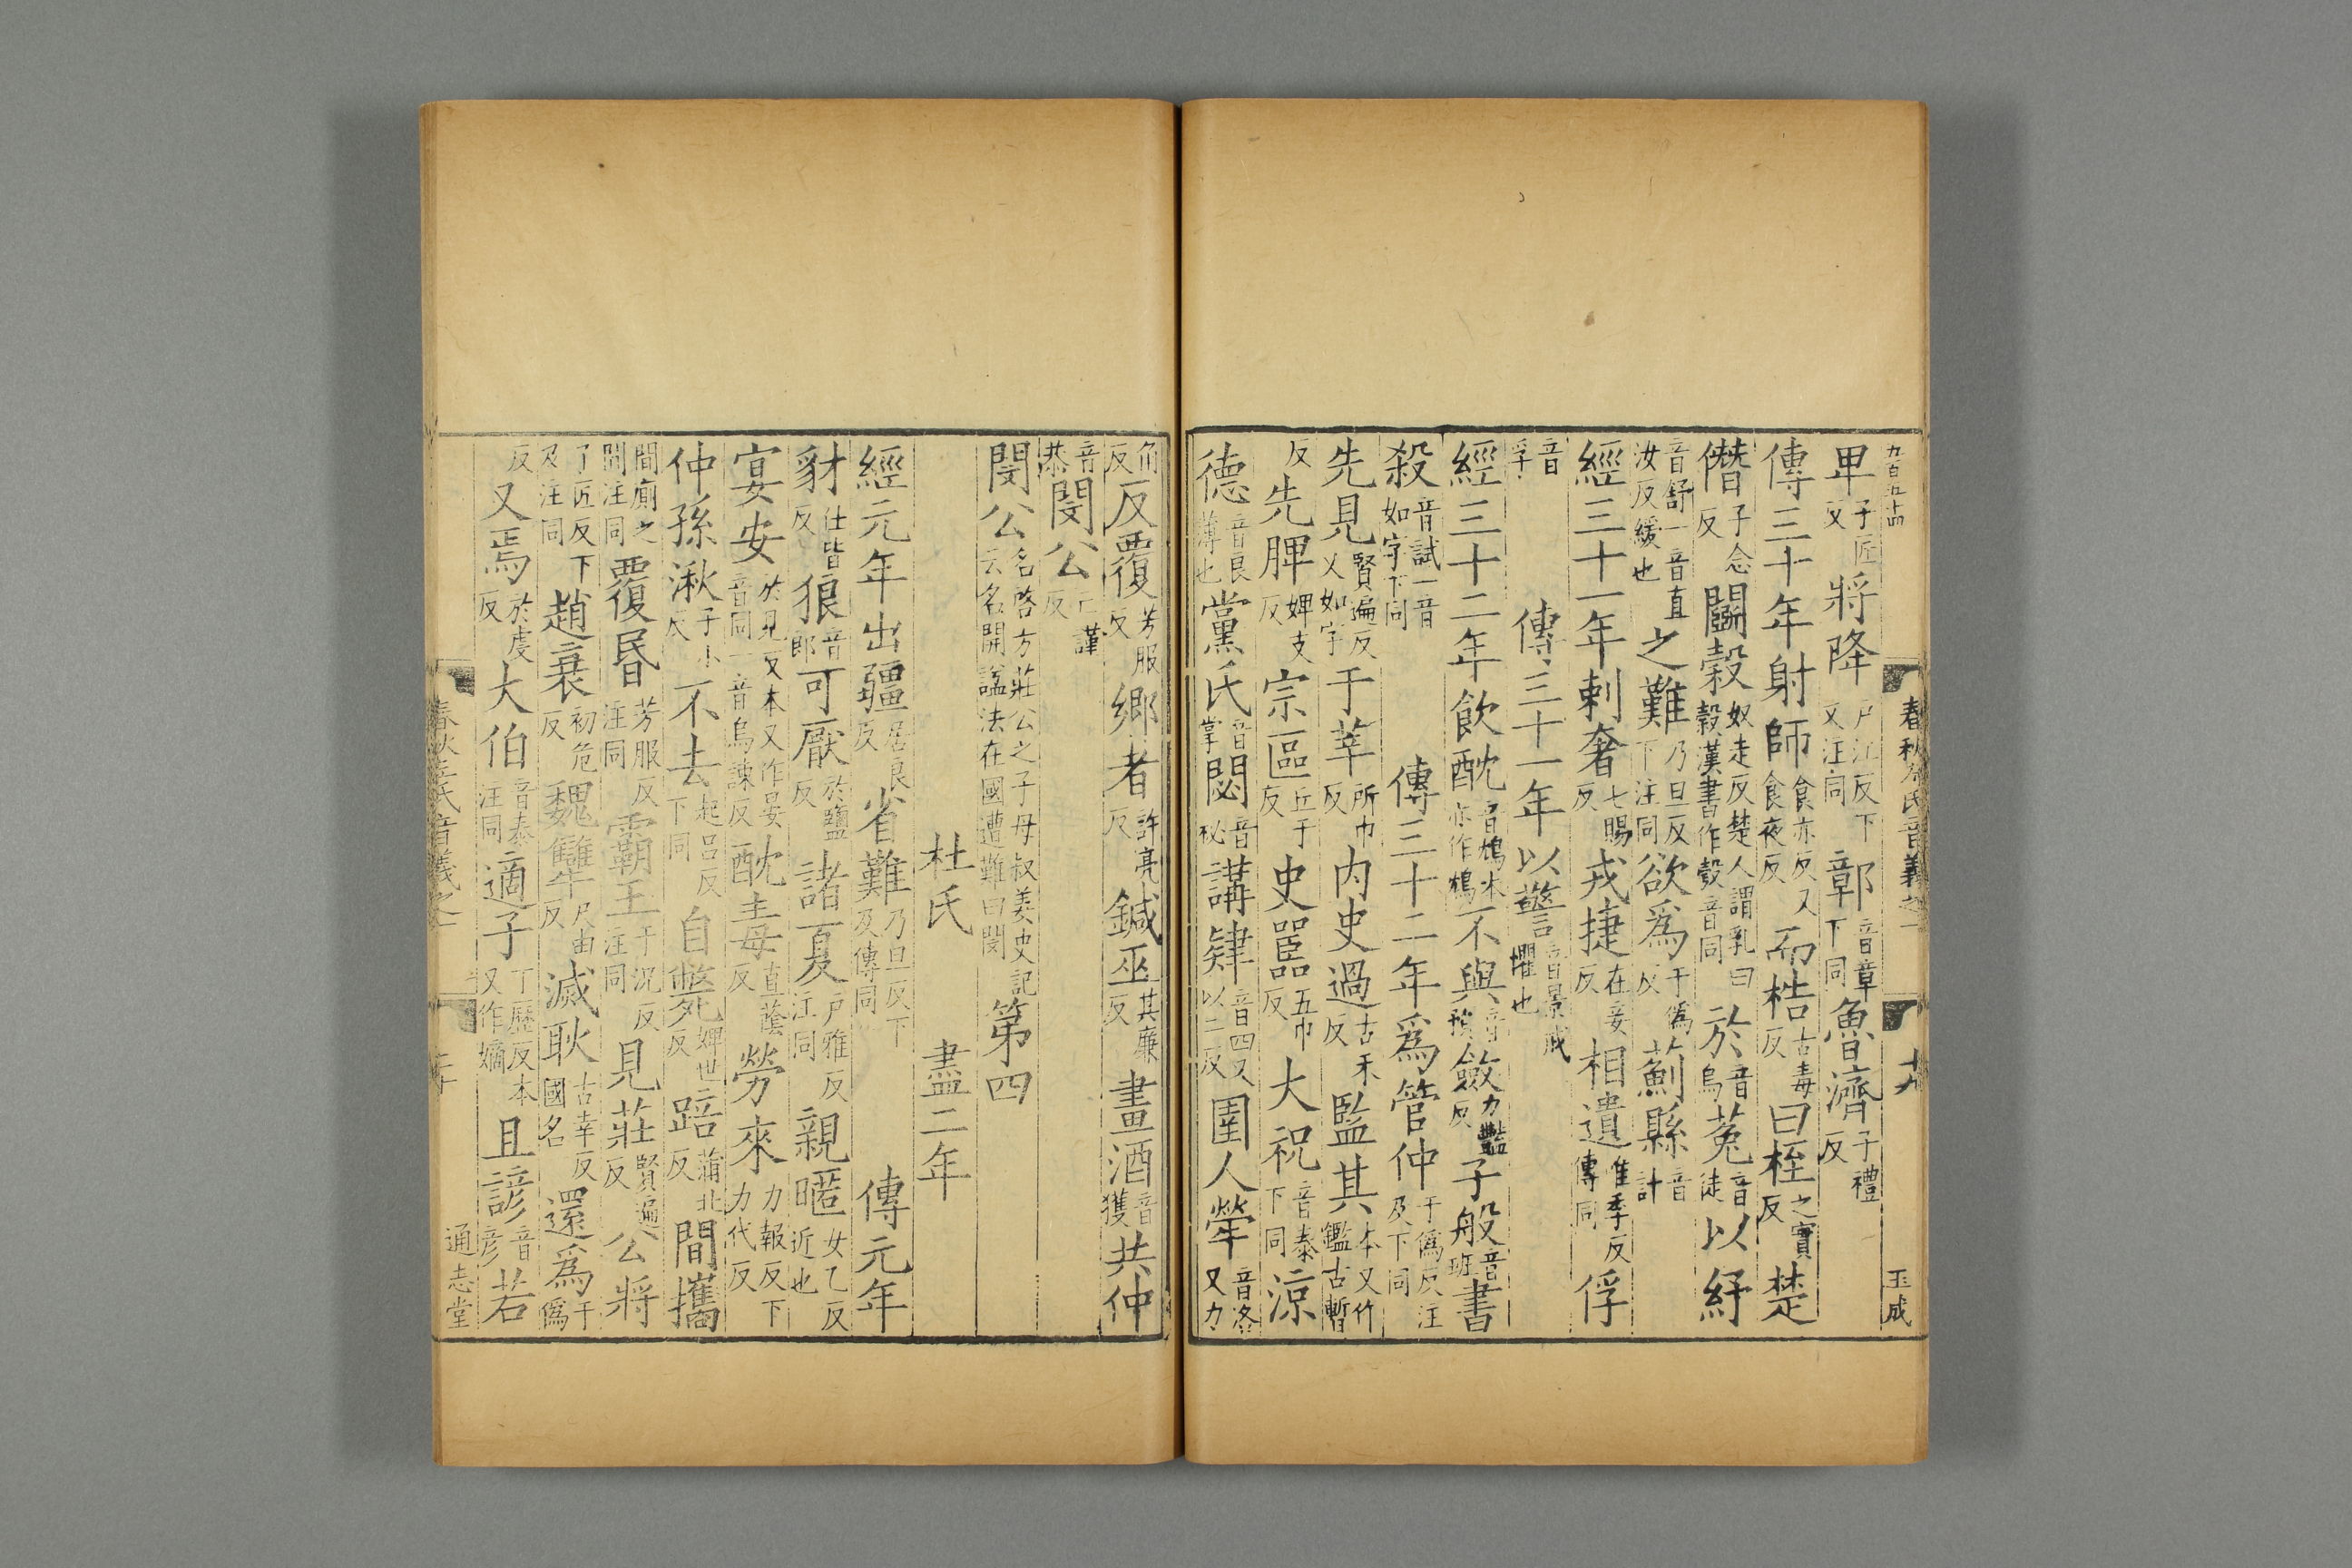 九百五十四 春秋左氏音義之一 九 玉成
卑子匠反將降戶江反下又注同鄣音章下同魯濟子禮反
傳三十年射師食亦反又食夜反而梏古毒反曰桎之實反楚
僭子念反鬭穀奴走反楚人謂乳曰穀漢書作㝅音同於音烏菟音徒以紓
音舒一音直汝反緩也之難乃旦反下注同欲爲于僞反薊縣音計
經三十一年剌奢七賜反戎捷在妾反相遺唯季反傳同俘
音孚 傳三十一年以警音景戒懼也
經三十二年飲酖音鴆本亦作鴆不與音預斂力豔反子般音班書
殺音試一音如字下同 傳三十二年爲管仲于僞反注及下同
先見賢遍反又如字于莘所巾反內史過古禾反監其本又作鑑古暫
反先脾婢支反宗區丘于反史嚚五巾反大祝音泰下同涼
德音良薄也黨氏音掌閟音祕講肄音四又以二反圉人犖音洛又力
角反反覆芳服反鄉者許亮反鍼巫其廉反畫酒音獲共仲
音恭閔公亡謹反
閔公名啓方莊公之子母叔姜史記云名開謚法在國遭難曰閔第四
杜氏 盡二年
經元年出疆居良反省難乃旦反下及傳同 傳元年
豺仕皆反狼音郎可厭於鹽反諸夏戶雅反注同親暱女乙反近也
宴安於見反本又作晏音同一音烏諫反酖毒直蔭反勞來力報反下力代反
仲孫湫子小反不去起呂反下同自斃婢世反踣蒲北反間攜
間廁之間注同覆昬芳服反注同霸王于況反注同見莊賢遍反公將
子匠反下及注同趙衰初危反魏犨尺由反滅耿古幸反國名還爲于僞
反又焉於虔反大伯音泰注同適子丁歷反本又作嫡且諺音彦若
春秋左氏音義之一 二十 通志堂